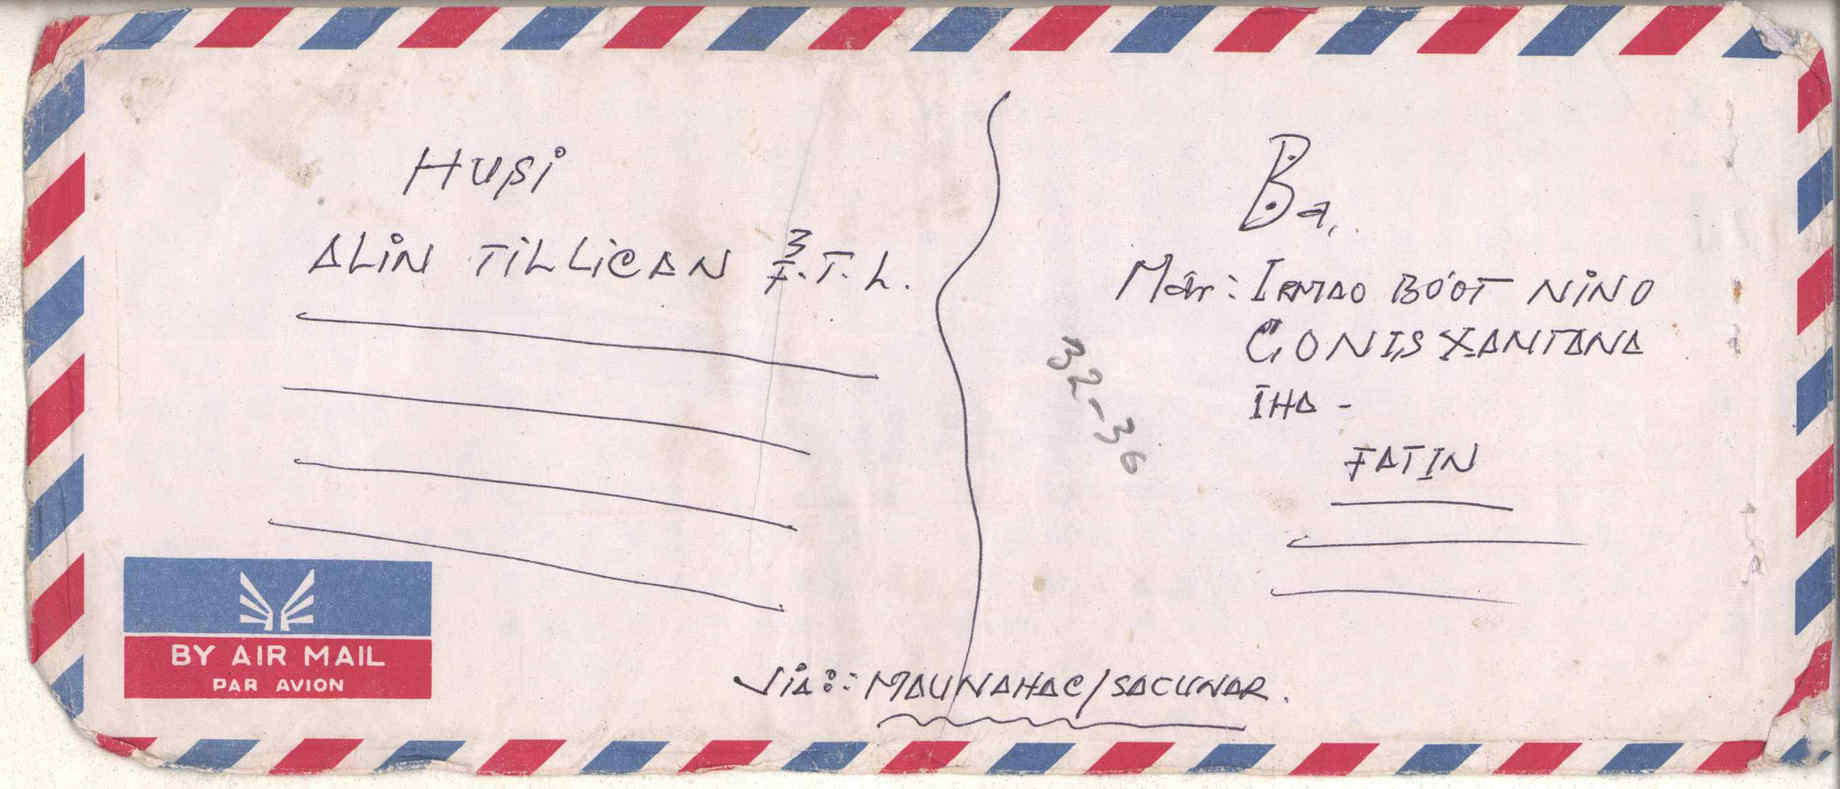 HUSi
ALiN TiLLiCAN 3 F.T.L.
Ba,.
Mâr: IRMAO BÓOT NiNO
CONIS XANTANA
IHA -
FATIN
32-36
Via:: MAUNAHAC/SACUNAR.
BY AIR MAIL
PAR AVION